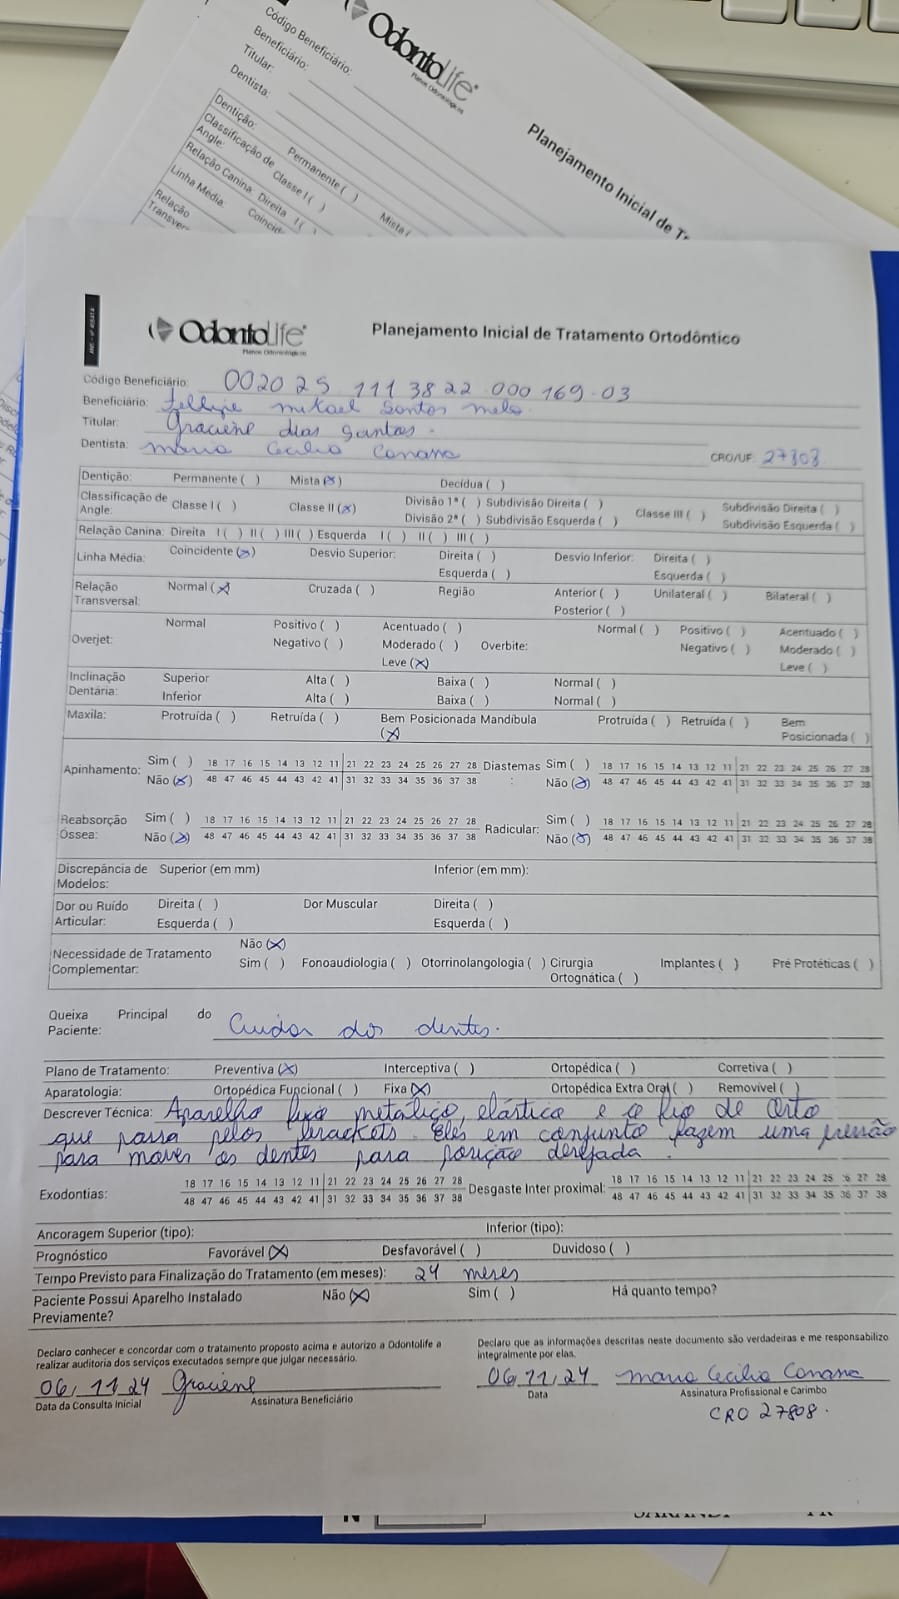 Código Beneficiário:
Beneficiário:
Titular:
Dentista:
OdontoLife
Planos Odontológicos
Planejamento Inicial de Tr
Dentição: Permanente ( ) Mista (
Classificação de Angle: Classe I ( )
Relação Canina: Direita I (
Linha Média: Coincid
Relação
Transver
OdontoLife
Planos Odontológicos
Planejamento Inicial de Tratamento Ortodôntico
Código Beneficiário: 002025 111 3822 000 169-03
Beneficiário: Fellipe mikael Santos melo
Titular: Graciene dias Santos.
Dentista: maria Cecilia Canana CRO/UF:
Dentição: Permanente ( ) Mista (x) Decídua ( )
Classificação de Angle: Classe I ( ) Classe II (x) Divisão 1ª ( ) Subdivisão Direita ( ) Classe III ( ) Subdivisão Direita ( )
Divisão 2ª ( ) Subdivisão Esquerda ( ) Subdivisão Esquerda ( )
Relação Canina: Direita I ( ) II ( ) III ( ) Esquerda I ( ) II ( ) III ( )
Linha Média: Coincidente (x) Desvio Superior: Direita ( ) Desvio Inferior: Direita ( )
Esquerda ( ) Esquerda ( )
Relação Transversal: Normal (x) Cruzada ( ) Região Anterior ( ) Unilateral ( ) Bilateral ( )
Posterior ( )
Overjet: Normal Positivo ( ) Acentuado ( ) Overbite: Normal ( ) Positivo ( ) Acentuado ( )
Negativo ( ) Moderado ( ) Negativo ( ) Moderado ( )
Leve (x) Leve ( )
Inclinação Dentária: Superior Alta ( ) Baixa ( ) Normal ( )
Inferior Alta ( ) Baixa ( ) Normal ( )
Maxila: Protruída ( ) Retruída ( ) Bem Posicionada (x) Mandíbula Protruída ( ) Retruída ( ) Bem Posicionada ( )
Apinhamento: Sim ( ) 18 17 16 15 14 13 12 11 21 22 23 24 25 26 27 28 Diastemas: Sim ( ) 18 17 16 15 14 13 12 11 21 22 23 24 25 26 27 28
Não (x) 48 47 46 45 44 43 42 41 31 32 33 34 35 36 37 38 Não (x) 48 47 46 45 44 43 42 41 31 32 33 34 35 36 37 38
Reabsorção Óssea: Sim ( ) 18 17 16 15 14 13 12 11 21 22 23 24 25 26 27 28 Radicular: Sim ( ) 18 17 16 15 14 13 12 11 21 22 23 24 25 26 27 28
Não (x) 48 47 46 45 44 43 42 41 31 32 33 34 35 36 37 38 Não (x) 48 47 46 45 44 43 42 41 31 32 33 34 35 36 37 38
Discrepância de Modelos: Superior (em mm) Inferior (em mm):
Dor ou Ruído Articular: Direita ( ) Dor Muscular Direita ( )
Esquerda ( ) Esquerda ( )
Necessidade de Tratamento Complementar: Não (x)
Sim ( ) Fonoaudiologia ( ) Otorrinolangologia ( ) Cirurgia Ortognática ( ) Implantes ( ) Pré Protéticas ( )
Queixa Principal do Paciente: Cuidar dos dentes.
Plano de Tratamento: Preventiva (x) Interceptiva ( ) Ortopédica ( ) Corretiva ( )
Aparatologia: Ortopédica Funcional ( ) Fixa (x) Ortopédica Extra Oral ( ) Removível ( )
Descrever Técnica: Aparelho fixo metalico, elástico e o fio de orto
que passa pelos brackets. Eles em conjunto fazem uma pressão
para mover os dentes para posição desejada.
Exodontias: 18 17 16 15 14 13 12 11 21 22 23 24 25 26 27 28 Desgaste Inter proximal: 18 17 16 15 14 13 12 11 21 22 23 24 25 26 27 28
48 47 46 45 44 43 42 41 31 32 33 34 35 36 37 38 48 47 46 45 44 43 42 41 31 32 33 34 35 36 37 38
Ancoragem Superior (tipo): Inferior (tipo):
Prognóstico Favorável (x) Desfavorável ( ) Duvidoso ( )
Tempo Previsto para Finalização do Tratamento (em meses): 24 meses
Paciente Possui Aparelho Instalado Previamente? Não (x) Sim ( ) Há quanto tempo?
Declaro conhecer e concordar com o tratamento proposto acima e autorizo a Odontolife a
realizar auditoria dos serviços executados sempre que julgar necessário.
Declaro que as informações descritas neste documento são verdadeiras e me responsabilizo
integralmente por elas.
06/11/24 Graciene 06/11/24 maria Cecilia Canana
Data da Consulta Inicial Assinatura Beneficiário Data Assinatura Profissional e Carimbo
CRO 27808.